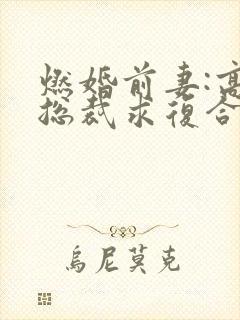 燃婚前妻:高
总裁求復合
烏尼莫克